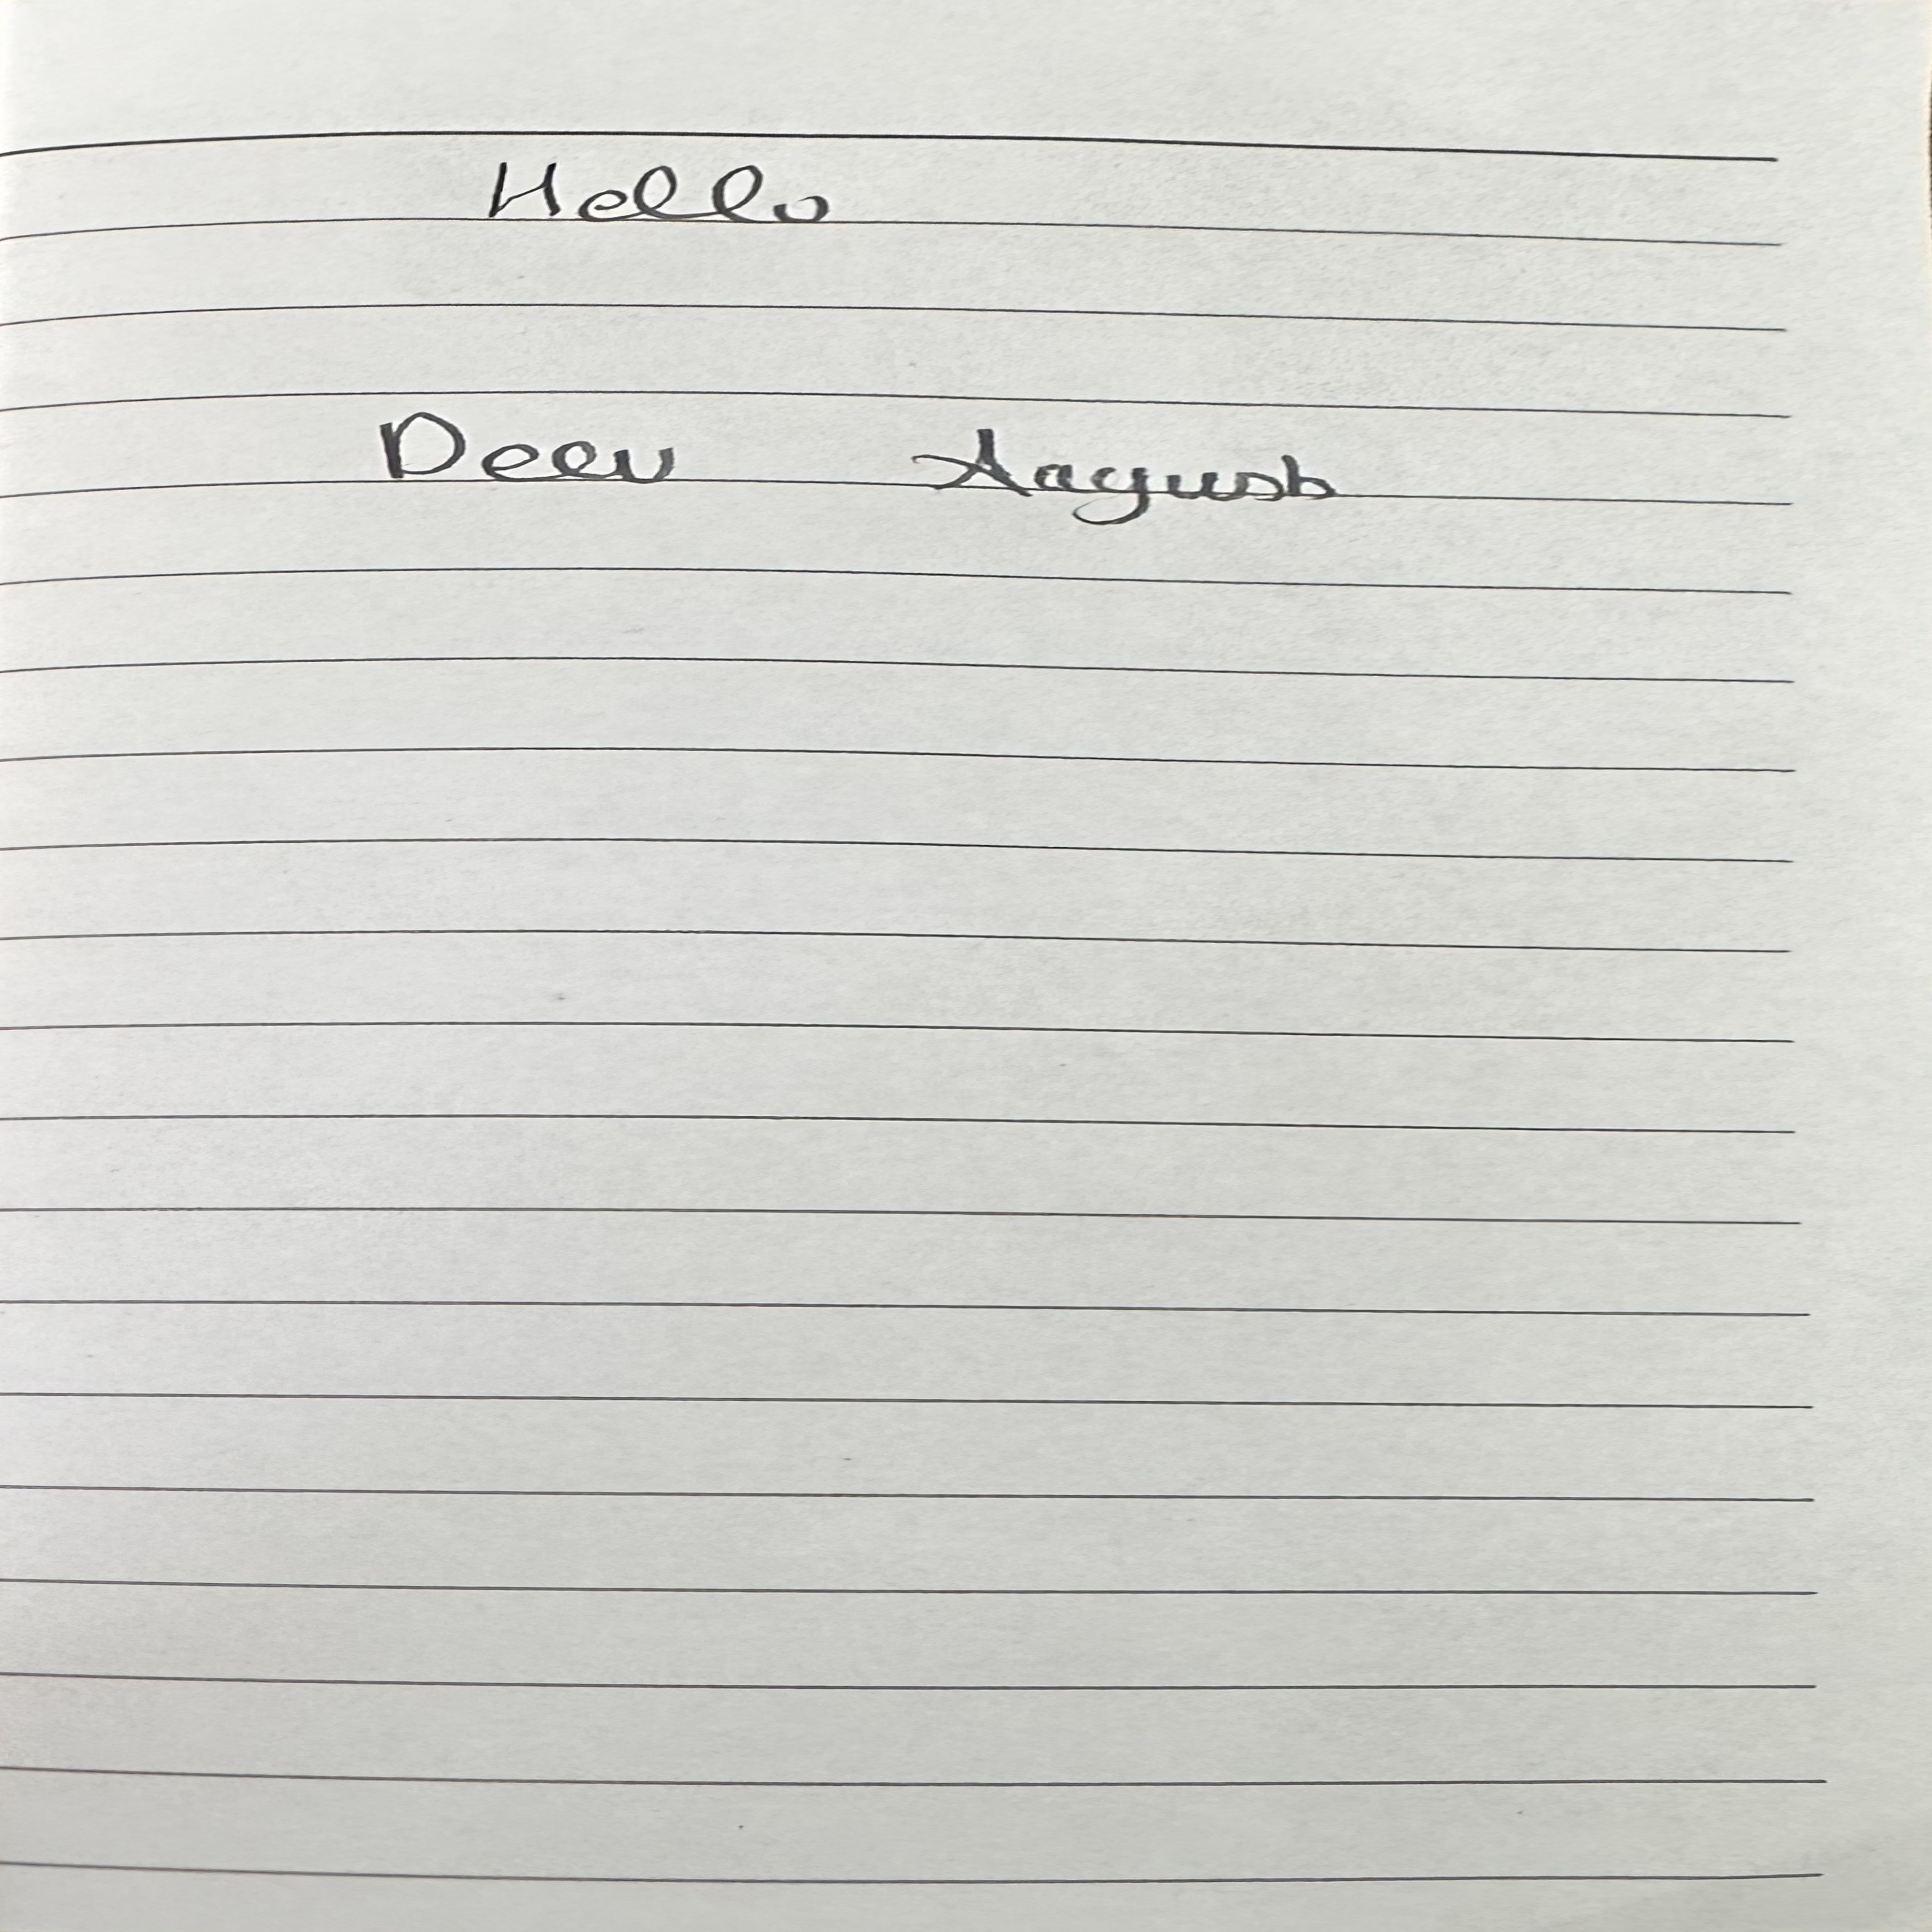 Hello
Deev Aagush